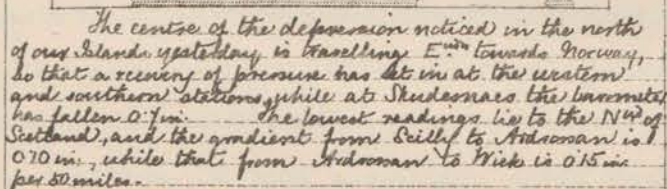 The centre of the depression noticed in the north
of our Islands yesterday is travelling E.wds towards Norway,
so that a recovery of pressure has set in at the western
and southern stations, while at Skudesnaes the barometer
has fallen 0.7 in. The lowest readings lie to the Nwd of
Scotland, and the gradient from Scilly to Ardrossan is
0.70 in., while that from Ardrossan to Wick is 0.15 in.
per 50 miles.